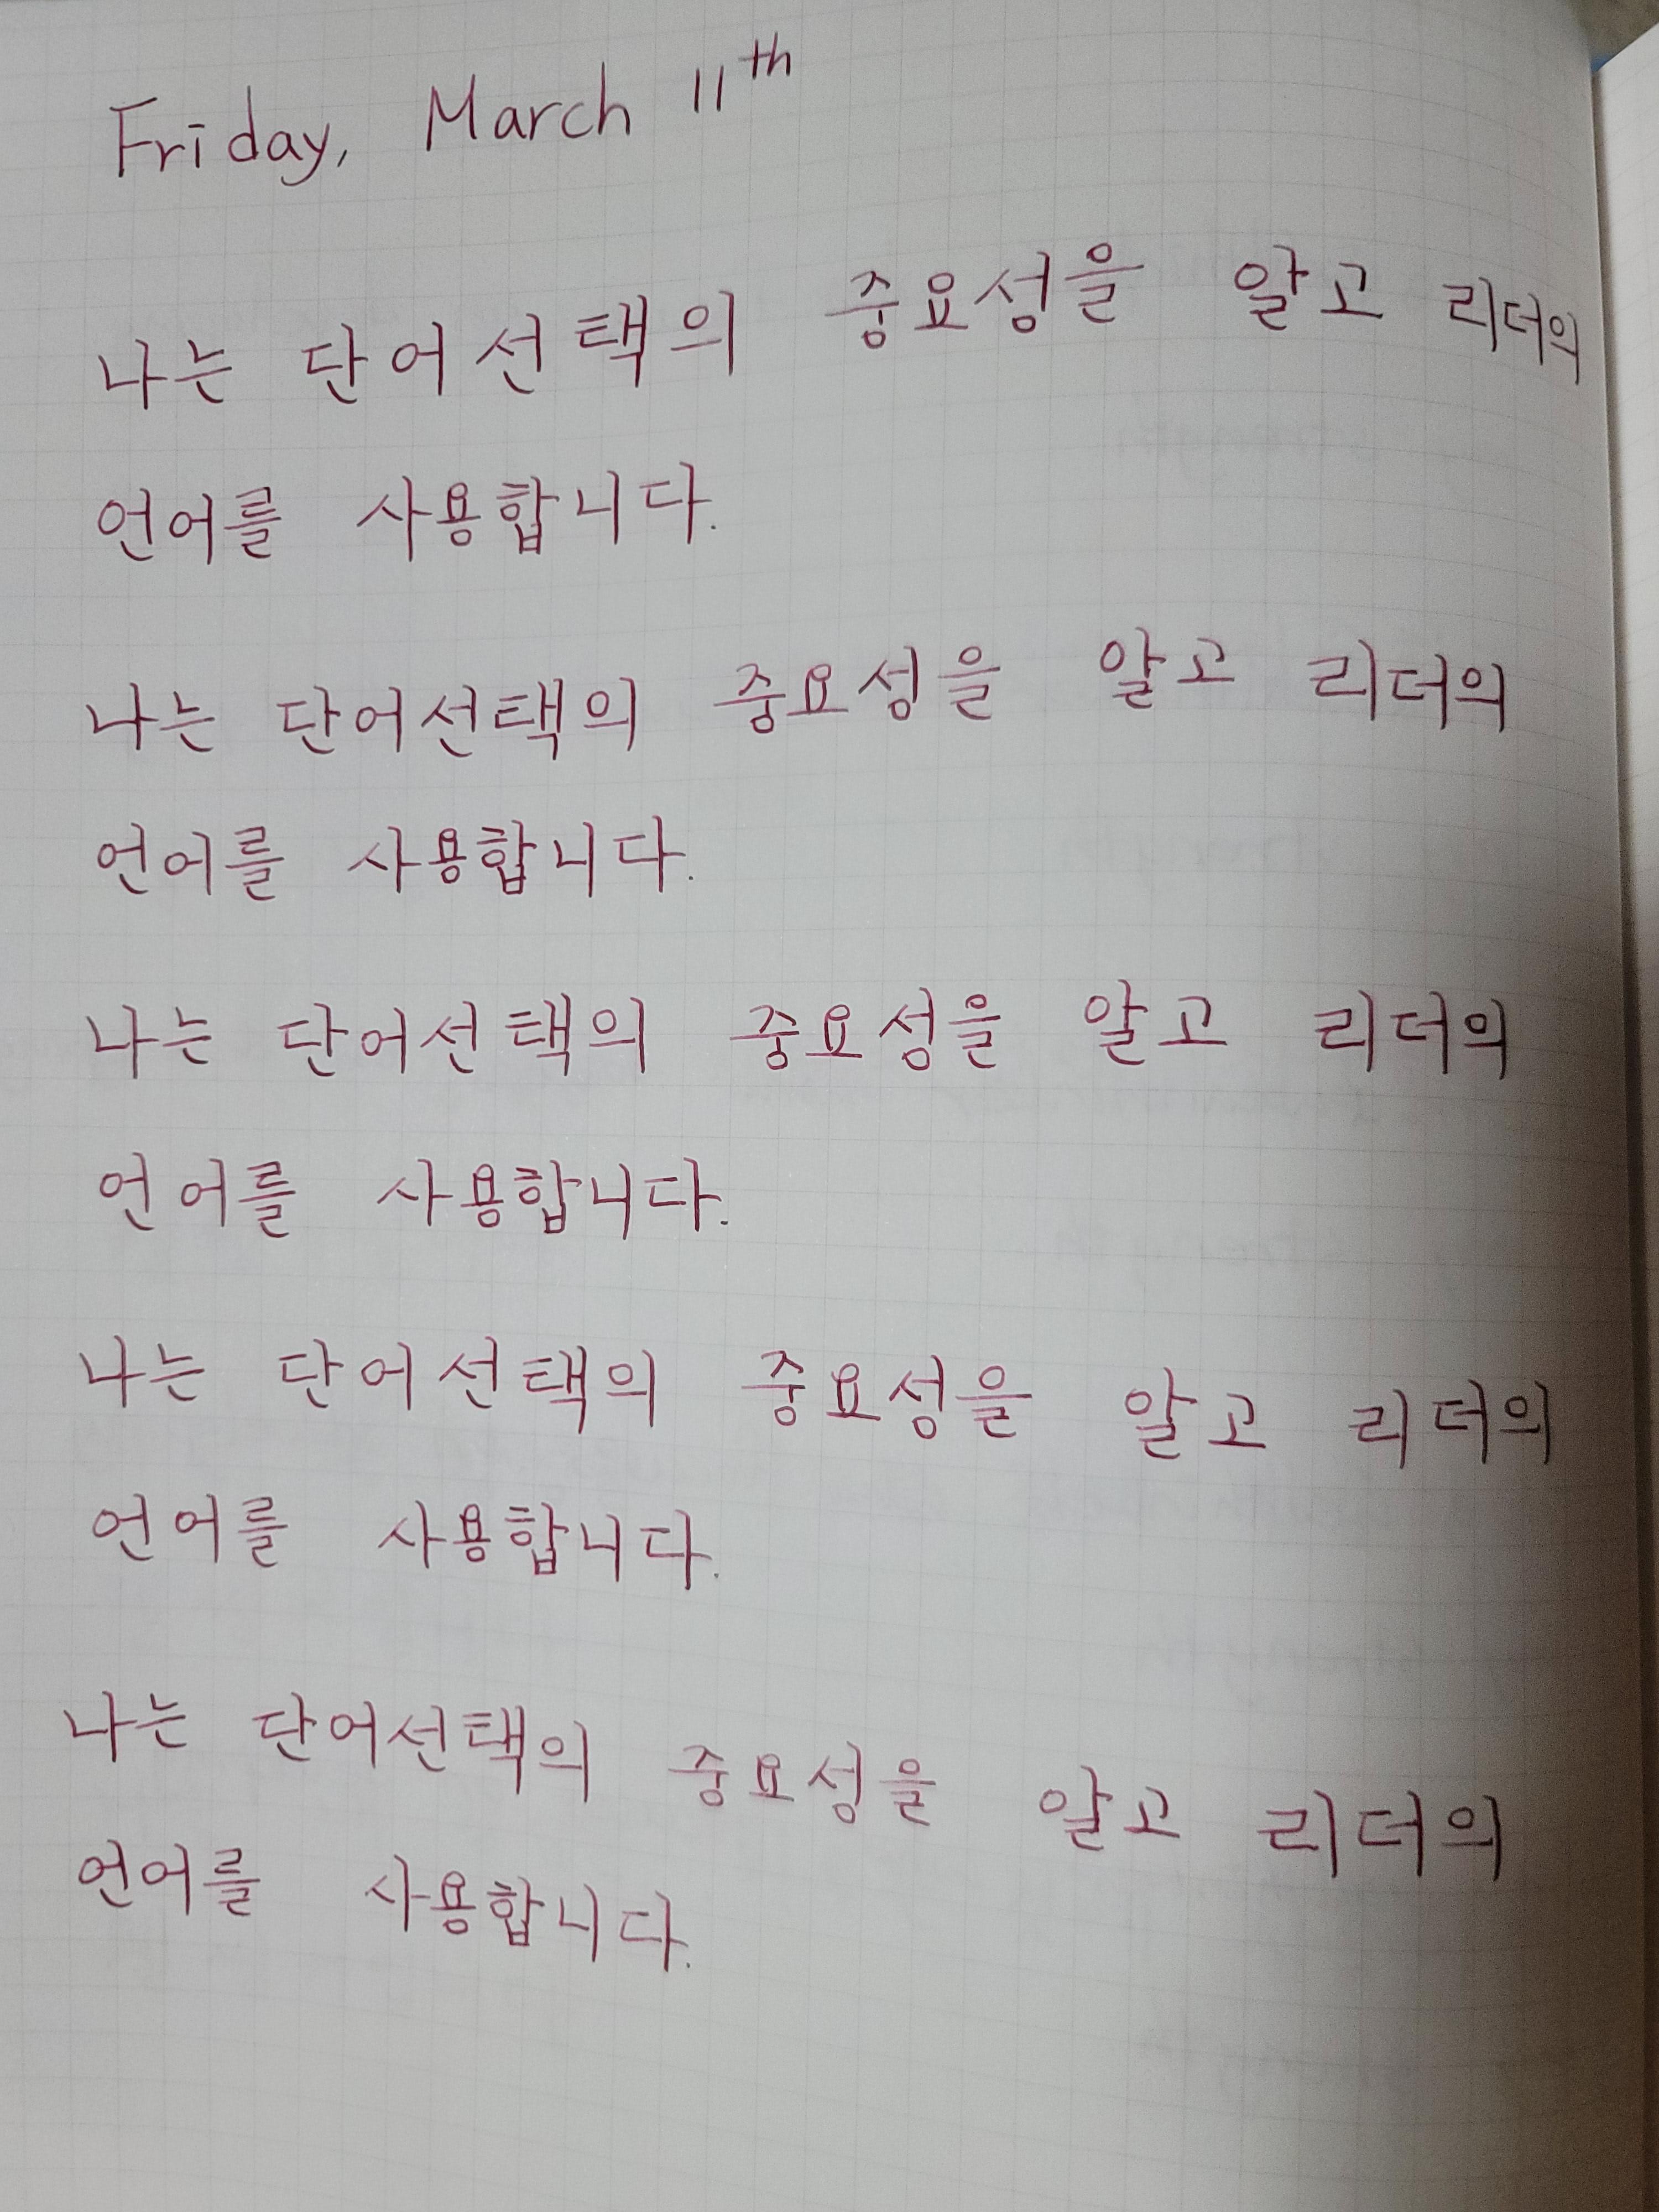 Friday, March 11th
나는 단어선택의 중요성을 알고 리더의
언어를 사용합니다.
나는 단어선택의 중요성을 알고 리더의
언어를 사용합니다.
나는 단어선택의 중요성을 알고 리더의
언어를 사용합니다.
나는 단어선택의 중요성을 알고 리더의
언어를 사용합니다.
나는 단어선택의 중요성을 알고 리더의
언어를 사용합니다.